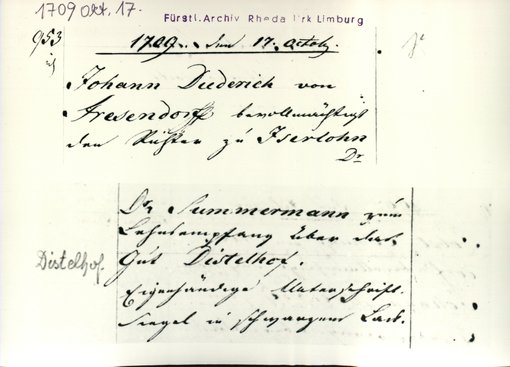 1709 Okt. 17.
Fürstl. Archiv Rheda Urk Limburg
953
1709. den 17. Octob.
Johann Diederich von
Aresendorff bevollmächtigt
den Richter zu Iserlohn
Dr
Dr. Summermann zum
Lehnsempfang über das
Gut Distelhof.
Distelhof.
Eigenhändige Unterschrift.
Siegel in schwarzem Lack.